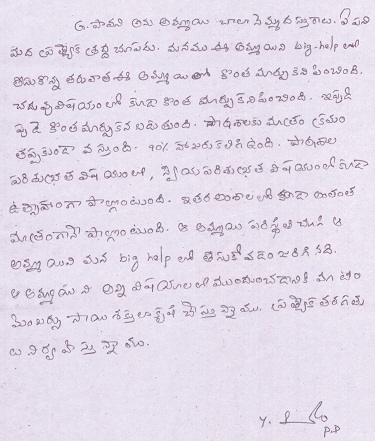 G. పావని అను అమ్మాయి చాలా నెమ్మదస్తురాలు. ఏ పని
మీద ప్రత్యేక శ్రద్ధ చూపదు. మనము ఈ అమ్మాయిని big-help లో
తీసుకొన్న తరువాత ఈ అమ్మాయిలో కొంత మార్పు కనిపించింది.
చదువు విషయంలో కూడా కొంత మార్పు కనిపించింది. ఇప్పుడి
ప్పుడే కొంత మార్పు కనబడుతుంది. పాఠశాలకు మాత్రం క్రమం
తప్పకుండా వస్తుంది. 90% హాజరు కలిగి ఉంది. పాఠశాల
పరిశుభ్రత విషయంలో, స్వీయ పరిశుభ్రత విషయంలో కూడా
ఉత్సాహంగా పాల్గొంటుంది. ఇతర అంశాలలో కూడా అంతంత
మాత్రంగానే పాల్గొంటుంది. ఆ అమ్మాయి పరిస్థితి చూసి ఆ
అమ్మాయిని మన big help లో తీసుకోవడం జరిగినది.
ఆ అమ్మాయిని అన్ని విషయాలలో ముందుంచడానికి మా టీం
మెంబర్సు సాయశక్తులా కృషి చేస్తున్నాము. ప్రత్యేక తరగతు
లు నిర్వహిస్తున్నాము.
P.D